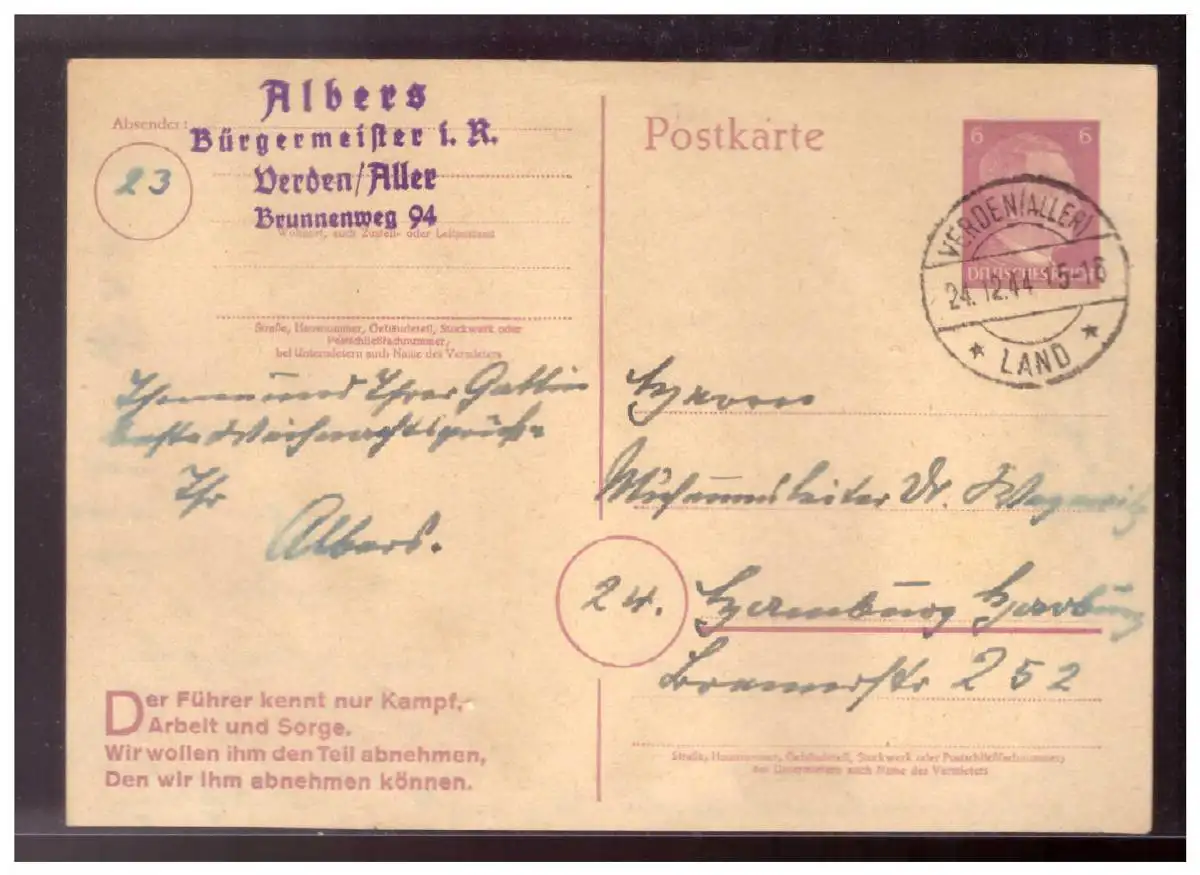 Absender:
Albers
Bürgermeister i. R.
Verden/Aller
Brunnenweg 94
23
Wohnort, auch Zustell- oder Leitpostamt
Straße, Hausnummer, Gebäudeteil, Stockwerk oder
Postschließfachnummer,
bei Untermietern auch Name des Vermieters
Ihnen und Ihrer Gattin
beste Weihnachtsgrüße
Ihr
Albers.
Der Führer kennt nur Kampf,
Arbeit und Sorge.
Wir wollen ihm den Teil abnehmen,
Den wir ihm abnehmen können.
Postkarte
6 6
DEUTSCHES REICH
VERDEN (ALLER)
24.12.44 15-16
* LAND *
Herrn
Museumsleiter Dr.
24. Hamburg Harburg
Bremerstr 252
Straße, Hausnummer, Gebäudeteil, Stockwerk oder Postschließfachnummer;
bei Untermietern auch Name des Vermieters